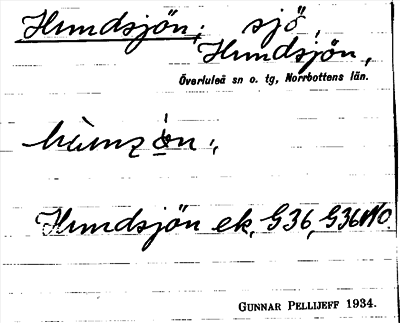 Hundsjön; sjö,
Hundsjön,
Överluleå sn o. tg, Norrbottens län.
Hundsjön ek. G36, G36NO.
GUNNAR PELLIJEFF 1934.